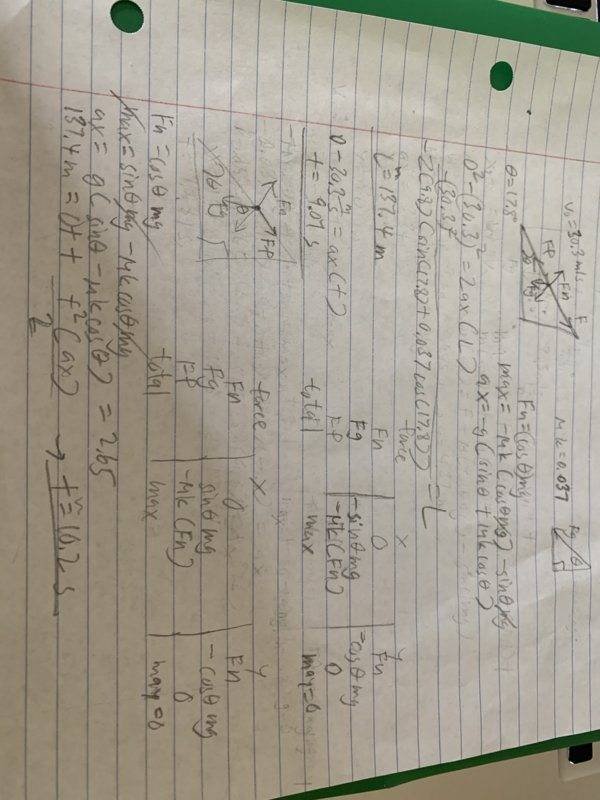 V₀ = 30.3 m/s
F
Fn
FP
Fg
θ = 17.8°
μk = 0.037
Fg
θ
Fn = cosθ mg
max = -μk (cosθ mg) - sinθ mg
ax = -g (sinθ + μk cosθ)
0² - (30.3)² = 2ax (L)
-(30.3)²
-2(9.8)(sin(17.8) + 0.037 cos(17.8)) = L
L = 137.4 m
0 - 30.3 = ax(t)
t = 9.07 s
force x y
Fn 0 Fn
Fg -sinθ mg -cosθ mg
FP -μk (Fn) 0
total max may = 0
Fn
FP
θ
Fg
force x y
Fn 0 Fn
Fg sinθ mg -cosθ mg
FP -μk (Fn) 0
total max may = 0
Fn = cosθ mg
max = sinθ mg - μk cosθ mg
ax = g (sinθ - μk cosθ) = 2.65
137.4 m = 0t + t² (ax) / 2 → t = 10.2 s